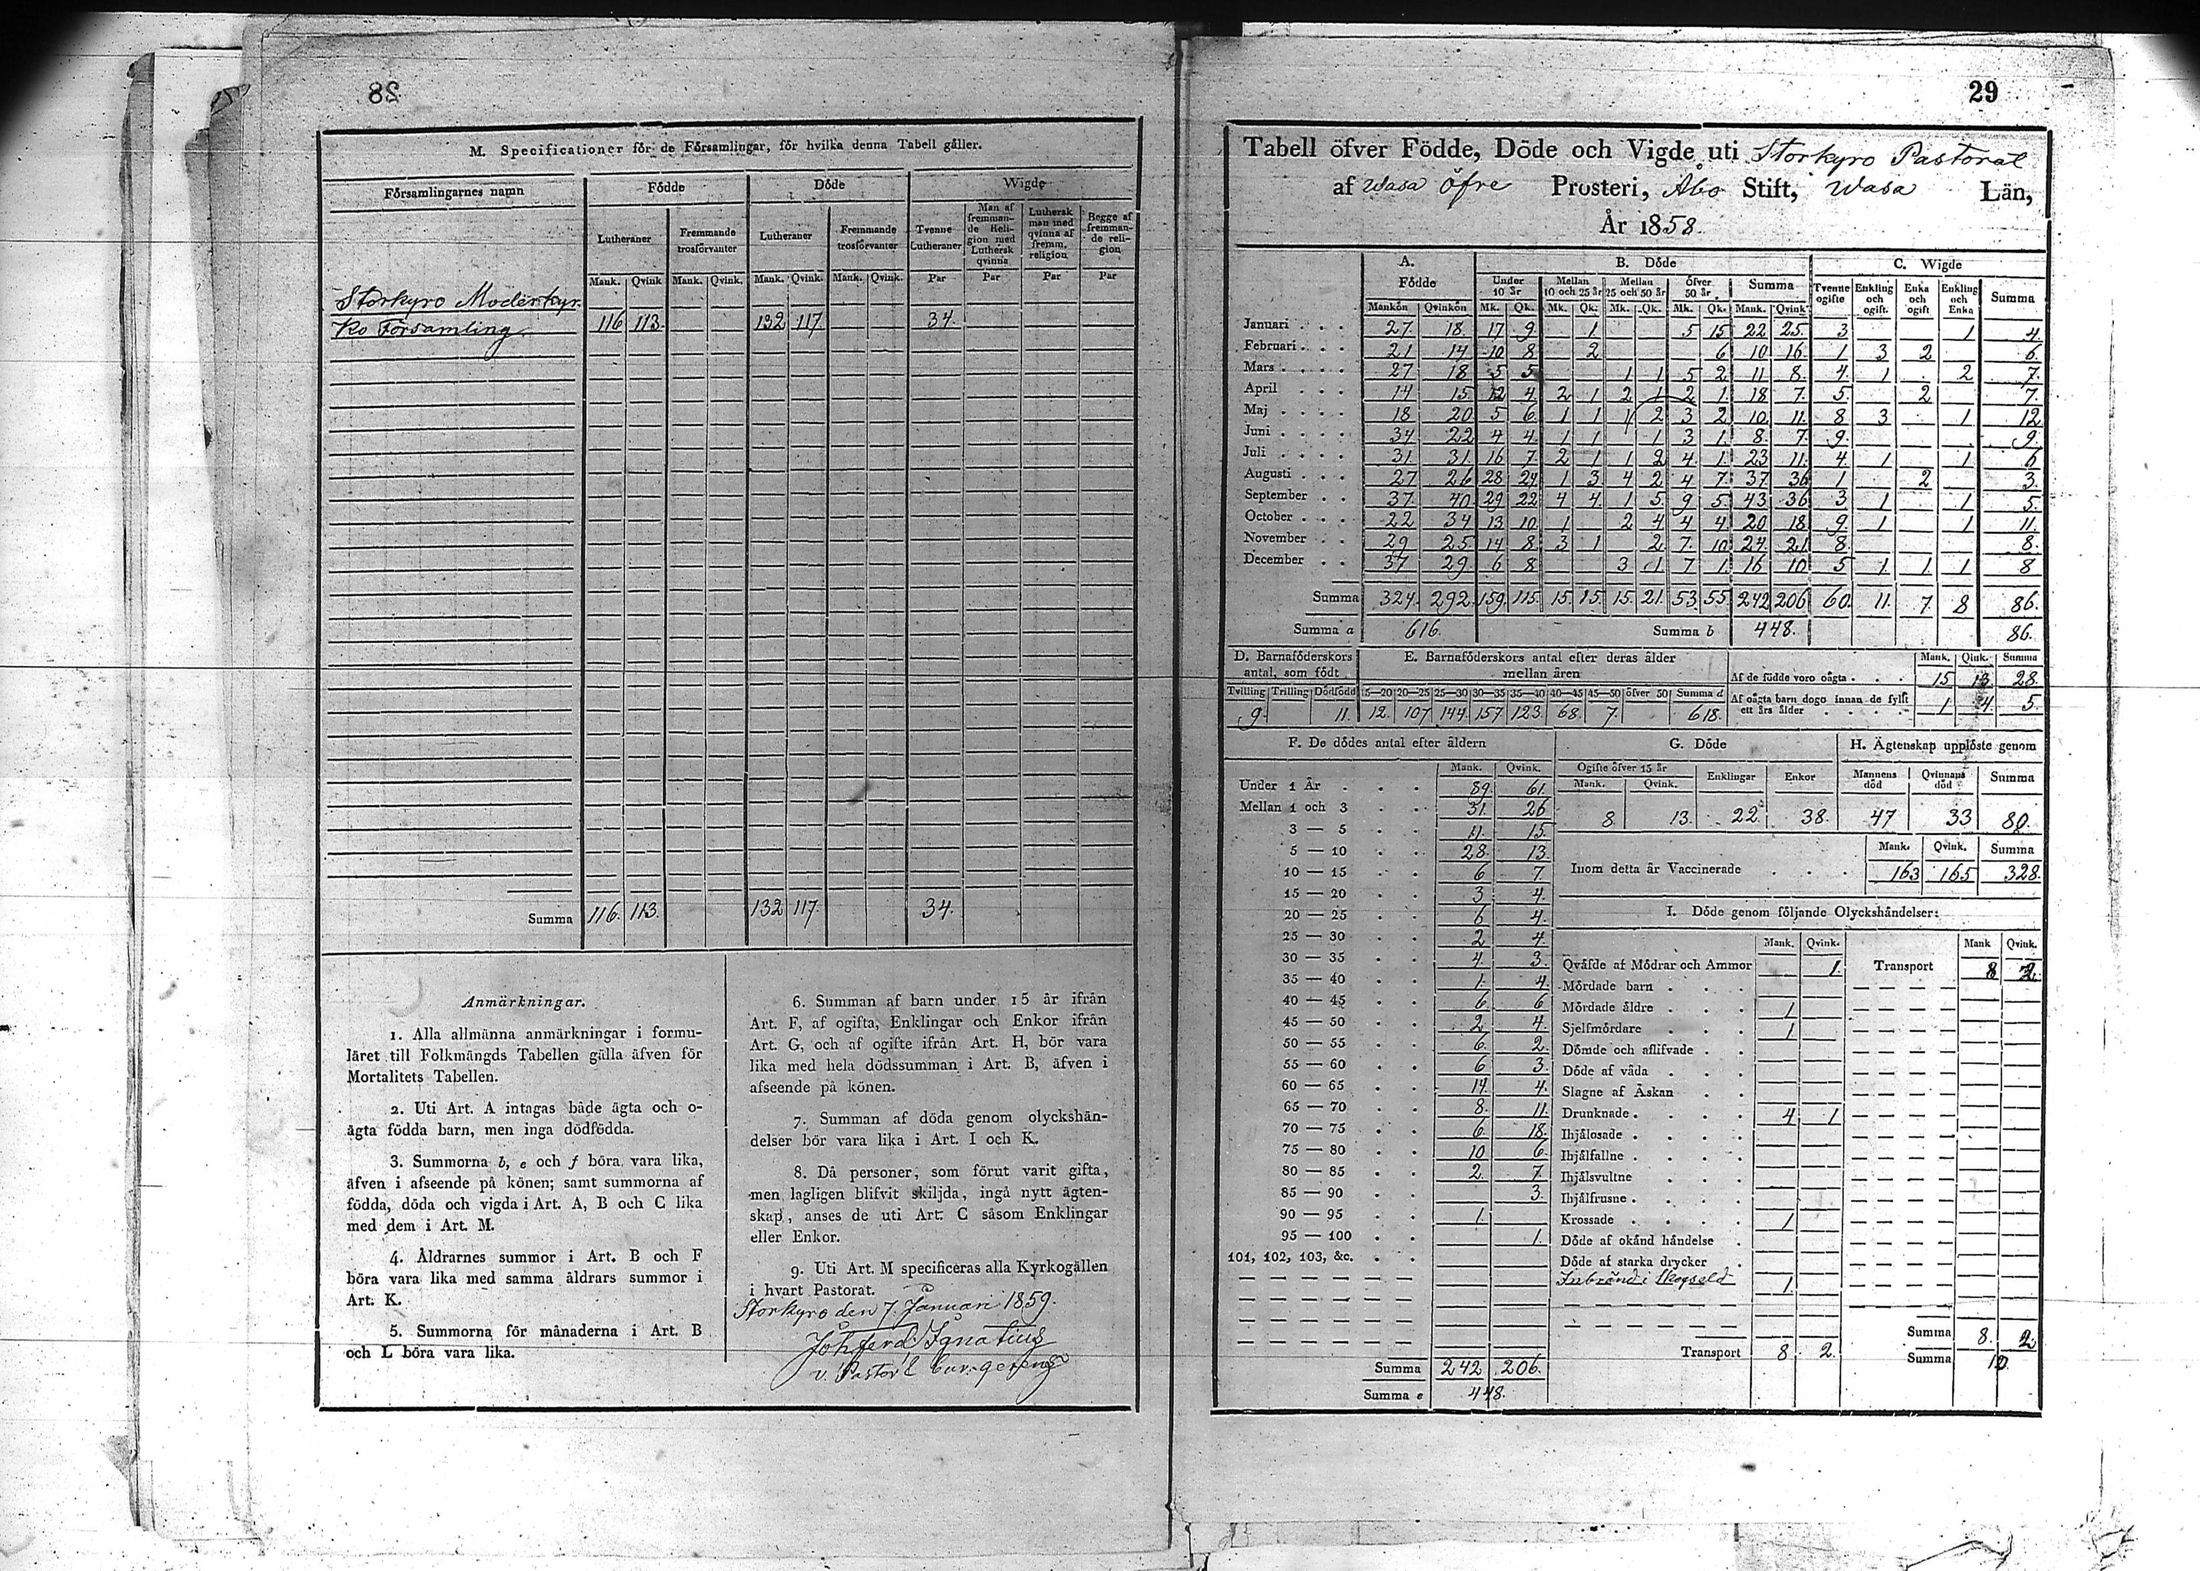 28
M. Specificationer för de Församlingar, för hvilka denna Tabell gäller.
Församlingarnes namn
Födde
Döde
Wigde
Lutheraner
Fremmande trosförvanter
Lutheraner
Fremmande trosförvanter
Tvenne Lutheraner
Man af fremmande Religion med Luthersk qvinna
Luthersk man med qvinna af fremm. religion
Begge af fremmande religion
Mank. Qvink Mank. Qvink. Mank. Qvink. Mank. Qvink. Par Par Par Par
Storkyro Moderkyr.
ko Församling 116 113. 132 117 34.
Summa 116. 113. 132 117. 34.
Anmärkningar.
1. Alla allmänna anmärkningar i formu-
läret till Folkmängds Tabellen gälla äfven för
Mortalitets Tabellen.
2. Uti Art. A intagas både ägta och o-
ägta födda barn, men inga dödfödda.
3. Summorna b, e och f böra vara lika,
äfven i afseende på könen; samt summorna af
födda, döda och vigda i Art. A, B och C lika
med dem i Art. M.
4. Åldrarnes summor i Art. B och F
böra vara lika med samma åldrars summor i
Art. K.
5. Summorna för månaderna i Art. B
och L böra vara lika.
6. Summan af barn under 15 år ifrån
Art. F, af ogifta, Enklingar och Enkor ifrån
Art. G, och af ogifte ifrån Art. H, bör vara
lika med hela dödssumman i Art. B, äfven i
afseende på könen.
7. Summan af döda genom olyckshän-
delser bör vara lika i Art. I och K.
8. Då personer, som förut varit gifta,
men lagligen blifvit skiljda, ingå nytt ägten-
skap, anses de uti Art. C såsom Enklingar
eller Enkor.
9. Uti Art. M specificeras alla Kyrkogällen
i hvart Pastorat.
Storkyro den 7. Januari 1859.
Joh. Ferd. Ignatius
v. Pastor
29
Tabell öfver Födde, Döde och Vigde uti Storkyro Pastorat
af Wasa Öfre Prosteri, Åbo Stift, Wasa Län,
År 1858.
A. Födde
B. Döde
C. Wigde
Under 10 år
Mellan 10 och 25 år
Mellan 25 och 50 år
Öfver 50 år
Summa
Tvenne ogifte
Enkling och ogift.
Enka och ogift
Enkling och Enka
Summa
Mankön Qvinkön Mk. Qk. Mk. Qk. Mk. Qk. Mk. Qk. Mank. Qvink
Januari 27 18 17 9 1 5 15 22 25. 3 1 4.
Februari 21 14 10 8 2 6 10 16. 1 3 2 6.
Mars 27 18 5 5 1 1 5 2 11 8. 4. 1 2 7.
April 14 15. 12 4 2 1 2 1 2 1. 18 7. 5. 2 7.
Maj 18 20 5 6 1 1 1 2 3 2 10. 11. 8 3 1 12
Juni 34 22 4 4. 1 1 1 3 1. 8. 7. 9. 9.
Juli 31. 31. 16 7. 2 1 1 2 4 1. 23 11. 4. 1 1 6
Augusti 27 26 28 24 1 3 4 2 4 7. 37 36 1 2 3.
September 37. 40. 29 22 4 4. 1 5. 9 5. 43 36 3 1 1 5.
October 22 34 13 10 1 2 4 4 4 20 18. 9 1 1 11.
November 29 25. 14 8 3 1 2 7. 10 24. 21. 8. 8.
December 37 29. 6 8 3 1 7 1. 16 10 5 1 1 1 8
Summa 324. 292. 159. 115. 15. 15. 15. 21. 53. 55. 242 206 60. 11. 7. 8 86.
Summa a 616. Summa b 448. 86.
D. Barnaföderskors antal, som födt
E. Barnaföderskors antal efter deras ålder mellan åren
Mank. Qink. Summa
Tvilling Trilling Dödfödd 15—20 20—25 25—30 30—35 35—40 40—45 45—50 öfver 50 Summa d
9. 11. 12. 107 144. 157 123. 68. 7. 618.
Af de födde voro oägta 15 13. 28.
Af oägta barn dogo innan de fyllt ett års ålder 1 4. 5
F. De dödes antal efter åldern
Mank. Qvink.
Under 1 År 89. 61.
Mellan 1 och 3 31. 26
3 — 5 11. 15.
5 — 10 28. 13.
10 — 15 6 7
15 — 20 3 4.
20 — 25 6 4.
25 — 30 2 4.
30 — 35 4. 3.
35 — 40 1. 4.
40 — 45 6 6
45 — 50 2 4.
50 — 55 6. 2.
55 — 60 6 3.
60 — 65 14 4.
65 — 70 8. 11.
70 — 75 6 18.
75 — 80 10 6.
80 — 85 2. 7
85 — 90 3.
90 — 95 1.
95 — 100 1.
101, 102, 103, &c.
Summa 242 206.
Summa e 448.
G. Döde
Ogifte öfver 15 år
Enklingar
Enkor
Mank. Qvink.
8 13. 22 38.
H. Ägtenskap upplöste genom
Mannens död
Qvinnans död
Summa
47 33 80.
Mank. Qvink. Summa
Inom detta år Vaccinerade 163 165 328.
I. Döde genom följande Olyckshändelser:
Mank. Qvink. Mank Qvink.
Qväfde af Mödrar och Ammor 1. Transport 8 2.
Mördade barn
Mördade äldre 1
Sjelfmördare 1
Dömde och aflifvade
Döde af våda
Slagne af Åskan
Drunknade 4 1
Ihjälosade
Ihjälfallne
Ihjälsvultne
Ihjälfrusne
Krossade 1
Döde af okänd händelse
Döde af starka drycker
Inbränd i Skogseld 1.
Transport 8. 2.
Summa 8. 2
Summa 10.